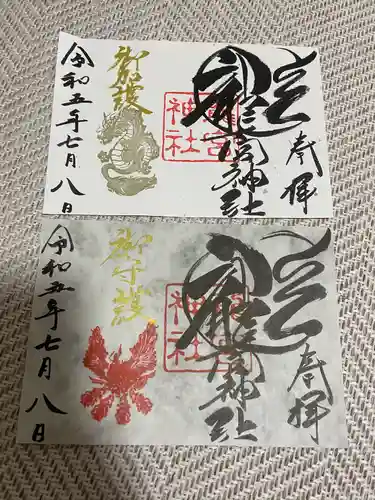 奉拝
龍宮神社
龍宮神社
御加護
令和五年七月八日
奉拝
龍宮神社
龍宮神社
御守護
令和五年七月八日